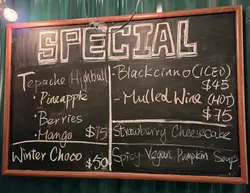 SPECIAL
Tepache Highball
• Pineapple
• Berries
• Mango $75
Winter Choco $50
Blackcinno (ICED)
$45
- Mulled Wine (HOT)
$75
Strawberry Cheesecake
Spicy Vegan Pumpkin Soup